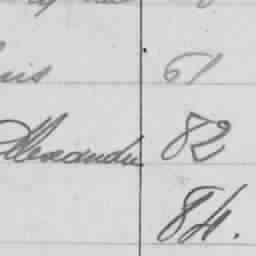 61
Alexander 82
84.